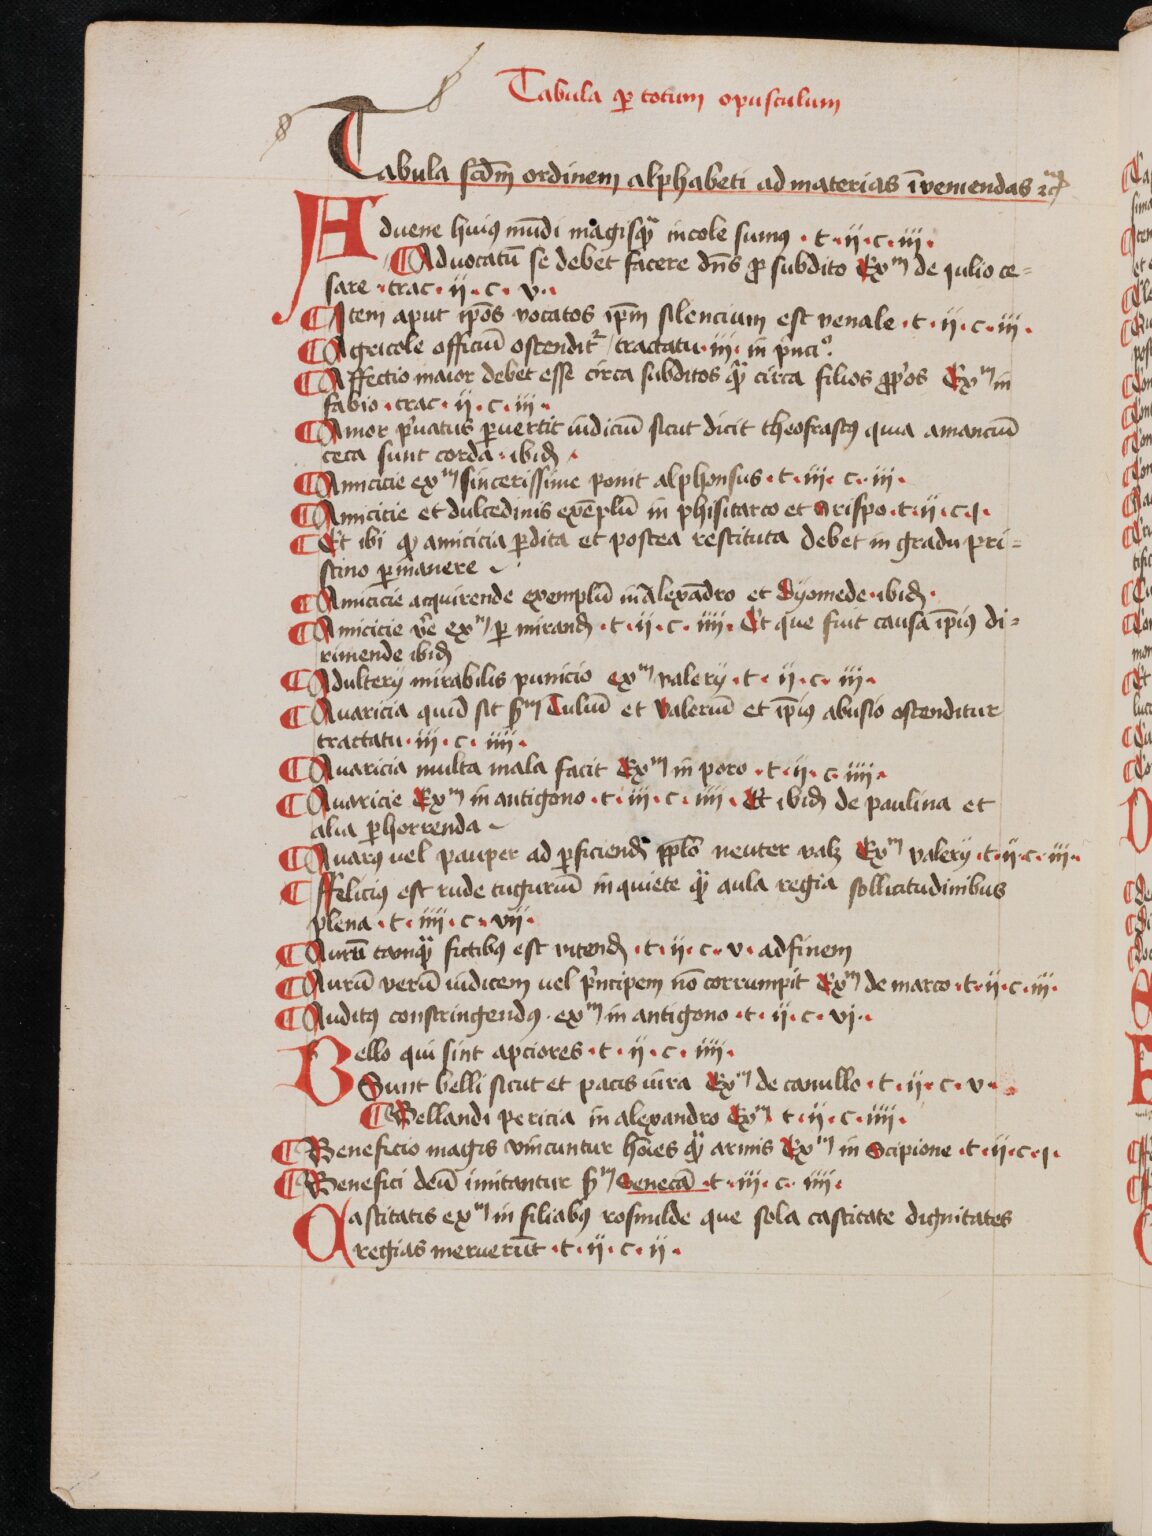 Tabula ꝑ totum opusculum
Tabula scd̄m ordinem alphabeti ad materias īveniendas ⁊cͣ
Aduene huiꝰ mūdi magisqͣ incole sumꝰ · t · ij · c · iiij ·
¶ Aduocatū se debet facere dn̄s ꝓ subdito Exᵐ de iulio ce=
sare · trac · ij · c · v ·
¶ Item aput ip̄os vocatos ip̄m silencium est venale · t · ij · c · iij ·
¶ Agricole officiū ostendit᷑ / tractatu · iij · in pͥnciᵒ.
¶ Affectio maior debet esse circa subditos qͣ circa filios ꝓpͥos Exᵐ in
fabio · trac · ij · c · iij ·
¶ Amor pͥuatus ꝑuertit iudiciū sicut dicit theofrastꝰ quia amanciū
ceca sunt corda · ibid̄ ·
¶ Amicicie exᵐ sincerissime ponit alphonsus · t · iij · c · iij ·
¶ Amicicie et dulcedinis exēplū in phisitarco et Crispo · t · ij · c · j ·
¶ Et ibi ꝙ amicicia ꝑdita et postea restituta debet in gradu pri=
stino ꝑmanere
¶ Amicicie acquirende exemplū in Alexādro et Dyomede · ibid̄ ·
¶ Amicicie v̄e exᵐ / ꝑ mirand̄ · t · ij · c · iiij · Et que fuit causa ip̄iꝰ di=
rimende ibid̄
¶ Adulterij mirabilis punicio exᵐ valerij · t · ij · c · iij ·
¶ Auaricia quid sit sᵐ Tuliū et Valeriū et ip̄iꝰ abusio ostenditur
tractatu · iij · c · iiij ·
¶ Auaricia multa mala facit Exᵐ in poro · t · ij · c · iiij ·
¶ Auaricie Exᵐ in antigono · t · iij · c · iiij · Et ibid̄ de paulina et
alia ꝑhorrenda
¶ Auarꝰ uel pauper ad ꝑficiend̄ pplō neuter valꝫ Exᵐ valerij · t · ij · c · iij ·
¶ ffelicius est rude tuguriū in quiete qͣ aula regia sollicitudinibus
plena · t · iiij · c · vij ·
¶ Aurū tamqͣ fictibꝰ est vtend̄ · t · ij · c · v · ad finem
¶ Aurū verū iudicem uel pͥncipem nō corrumpit Exᵐ de marco · t · ij · c · iij ·
¶ Auditꝰ constringendꝰ · exᵐ in antigono · t · ij · c · vj ·
Bello qui sint apciores · t · ij · c · iiij ·
Sunt belli sicut et pacis iura Exᵐ de camillo · t · ij · c · v ·
¶ Bellandi pericia in alexandro Exᵐ t · ij · c · iiij ·
¶ Beneficio magis vincuntur hōies qͣ armis Exᵐ in Scipione · t · ij · c · j ·
¶ Benefici deū imitantur sᵐ Senecā · t · iij · c · iiij ·
Castitatis exᵐ in filiabꝰ rosmilde que sola castitate dignitates
regias meruerūt · t · ij · c · ij ·